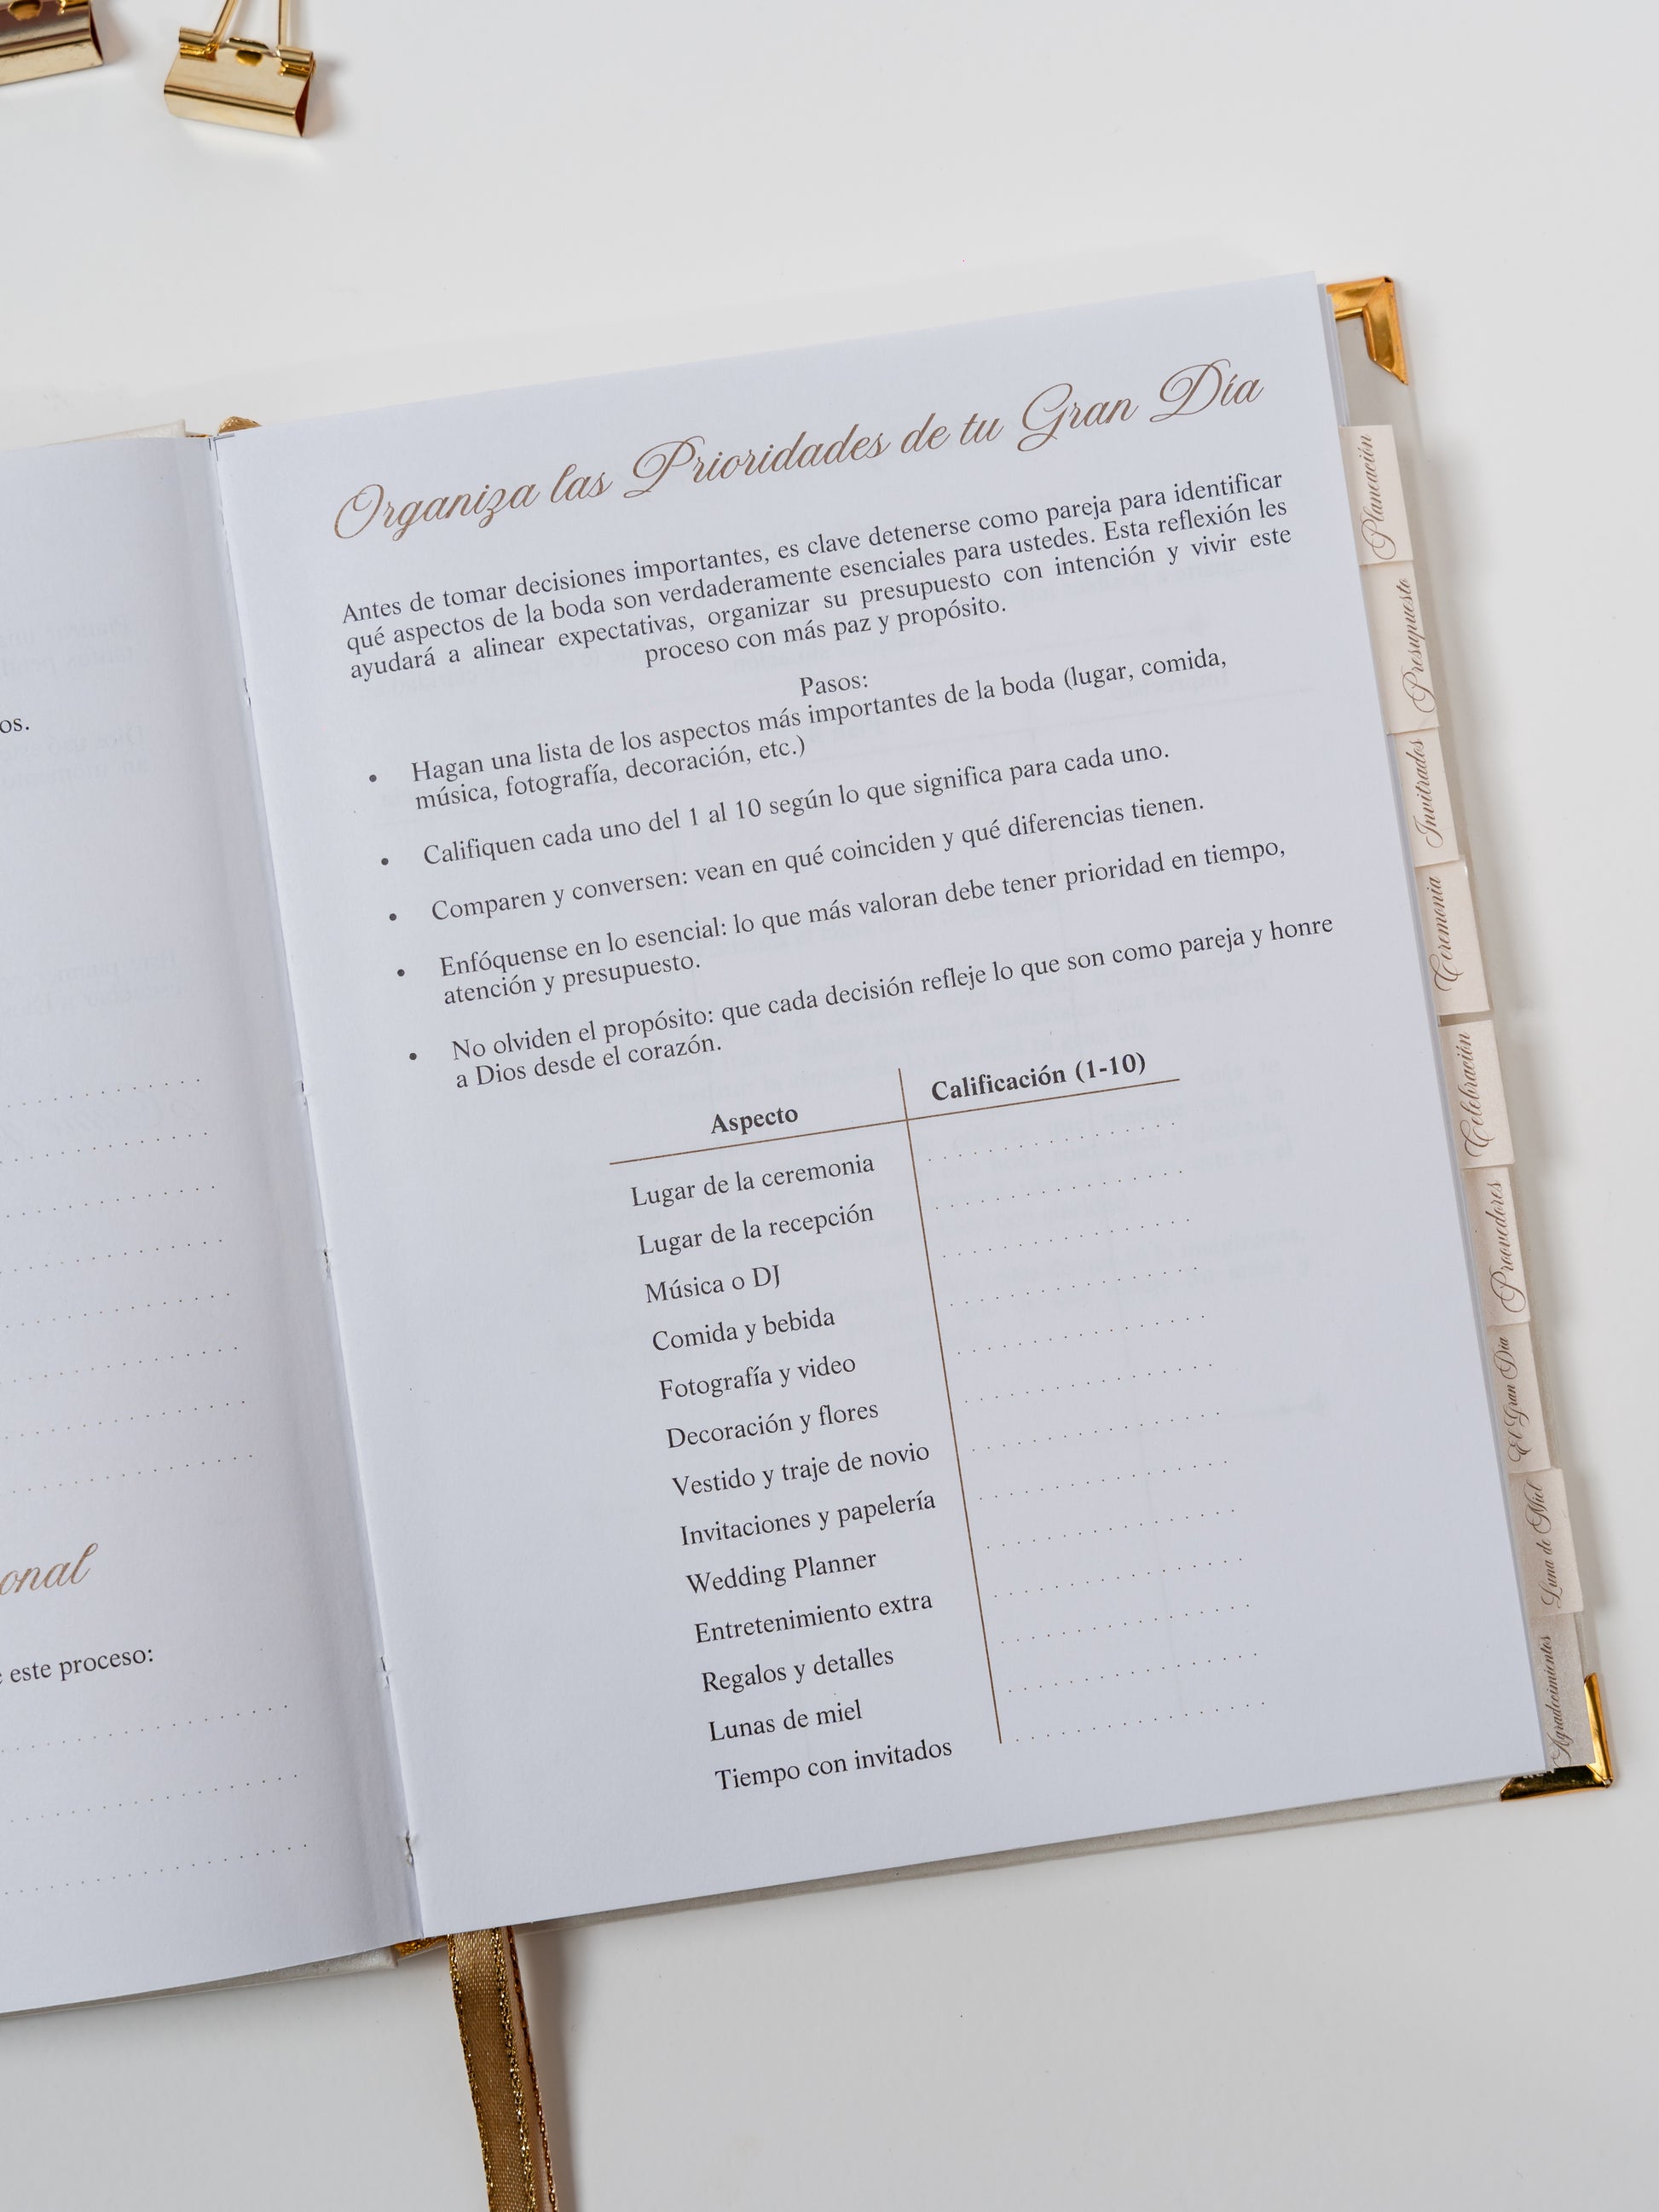 os.
onal
este proceso:
Organiza las Prioridades de tu Gran Día
Antes de tomar decisiones importantes, es clave detenerse como pareja para identificar
qué aspectos de la boda son verdaderamente esenciales para ustedes. Esta reflexión les
ayudará a alinear expectativas, organizar su presupuesto con intención y vivir este
proceso con más paz y propósito.
Pasos:
• Hagan una lista de los aspectos más importantes de la boda (lugar, comida,
música, fotografía, decoración, etc.)
• Califiquen cada uno del 1 al 10 según lo que significa para cada uno.
• Comparen y conversen: vean en qué coinciden y qué diferencias tienen.
• Enfóquense en lo esencial: lo que más valoran debe tener prioridad en tiempo,
atención y presupuesto.
• No olviden el propósito: que cada decisión refleje lo que son como pareja y honre
a Dios desde el corazón.
Aspecto Calificación (1-10)
Lugar de la ceremonia
Lugar de la recepción
Música o DJ
Comida y bebida
Fotografía y video
Decoración y flores
Vestido y traje de novio
Invitaciones y papelería
Wedding Planner
Entretenimiento extra
Regalos y detalles
Lunas de miel
Tiempo con invitados
Planeación
Presupuesto
Invitados
Ceremonia
Celebración
Proovedores
El Gran Día
Luna de Miel
Agradecimientos